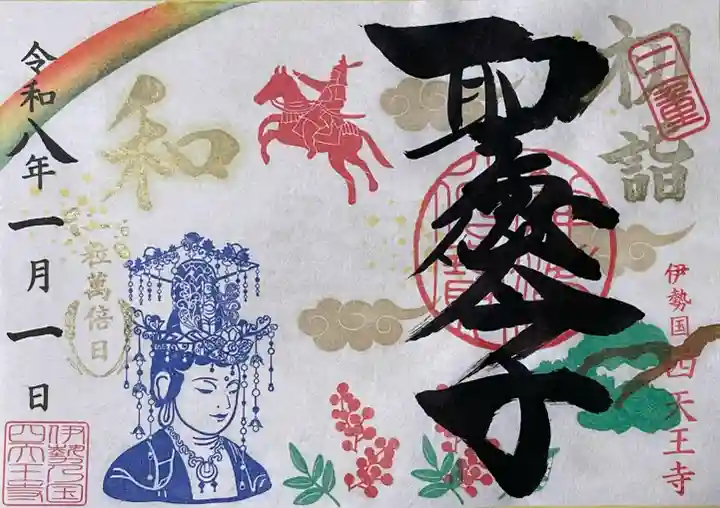 初詣
聖徳太子
伊勢国四天王寺
和
一粒萬倍日
令和八年一月一日
伊勢乃国
四天王寺